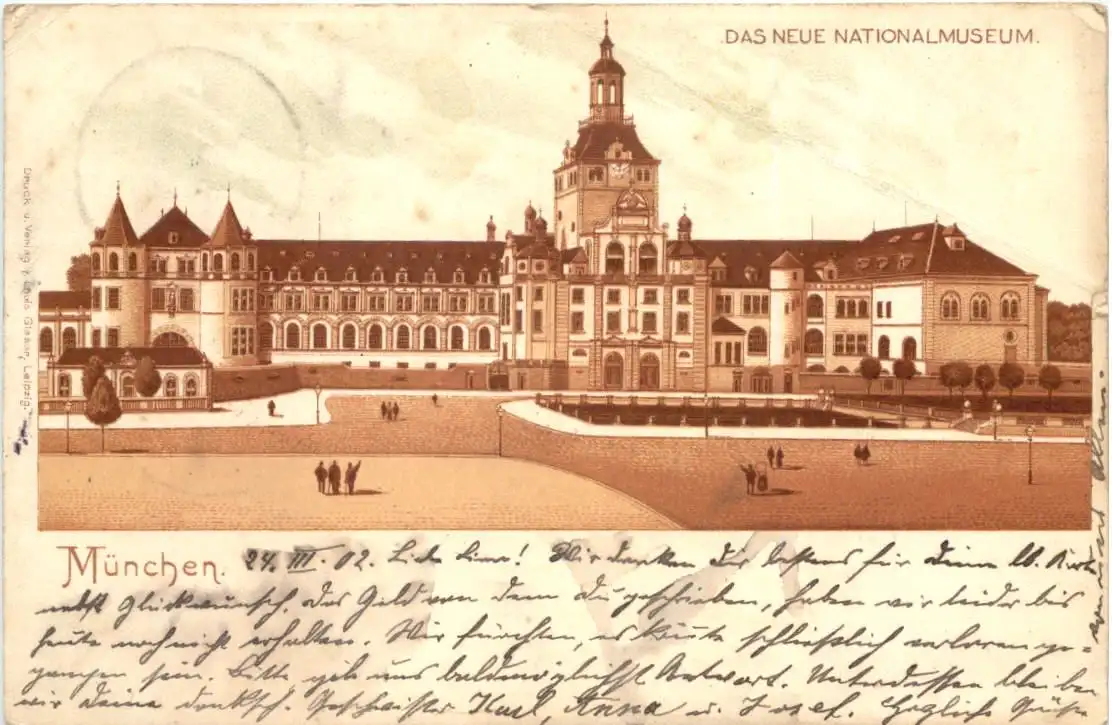 DAS NEUE NATIONALMUSEUM.
Druck u. Verlag v. Louis Glaser, Leipzig.
München.
24. III. 02. Liebe Lina! Wir danken Dir bestens für Deine lb. Karte
nebst Glückwunsch. Das Geld von dem Du geschrieben, haben wir leider bis
heute noch nicht erhalten. Wir fürchten, es könnte schließlich verloren ge-
gangen sein. Bitte gib uns baldmöglichst Antwort. Unterdessen bleiben
wir Deine dankb. Geschwister Karl, Anna u. Josef. Herzliche Grüße